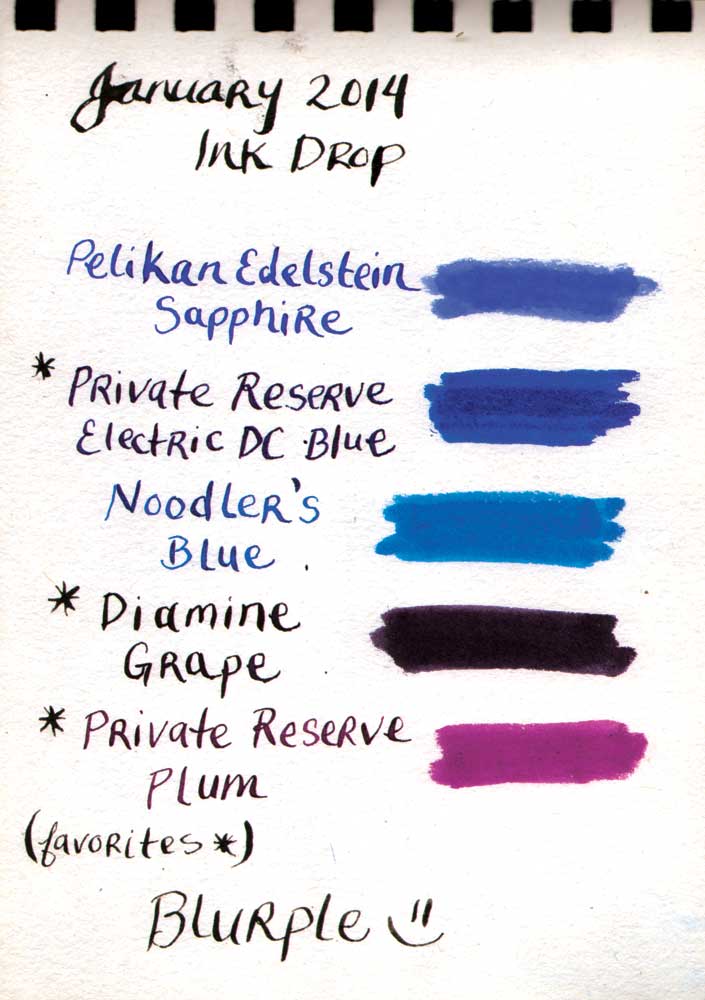 January 2014
Ink Drop
Pelikan Edelstein
Sapphire
* Private Reserve
Electric DC Blue
Noodler's
Blue
* Diamine
Grape
* Private Reserve
Plum
(favorites *)
Blurple